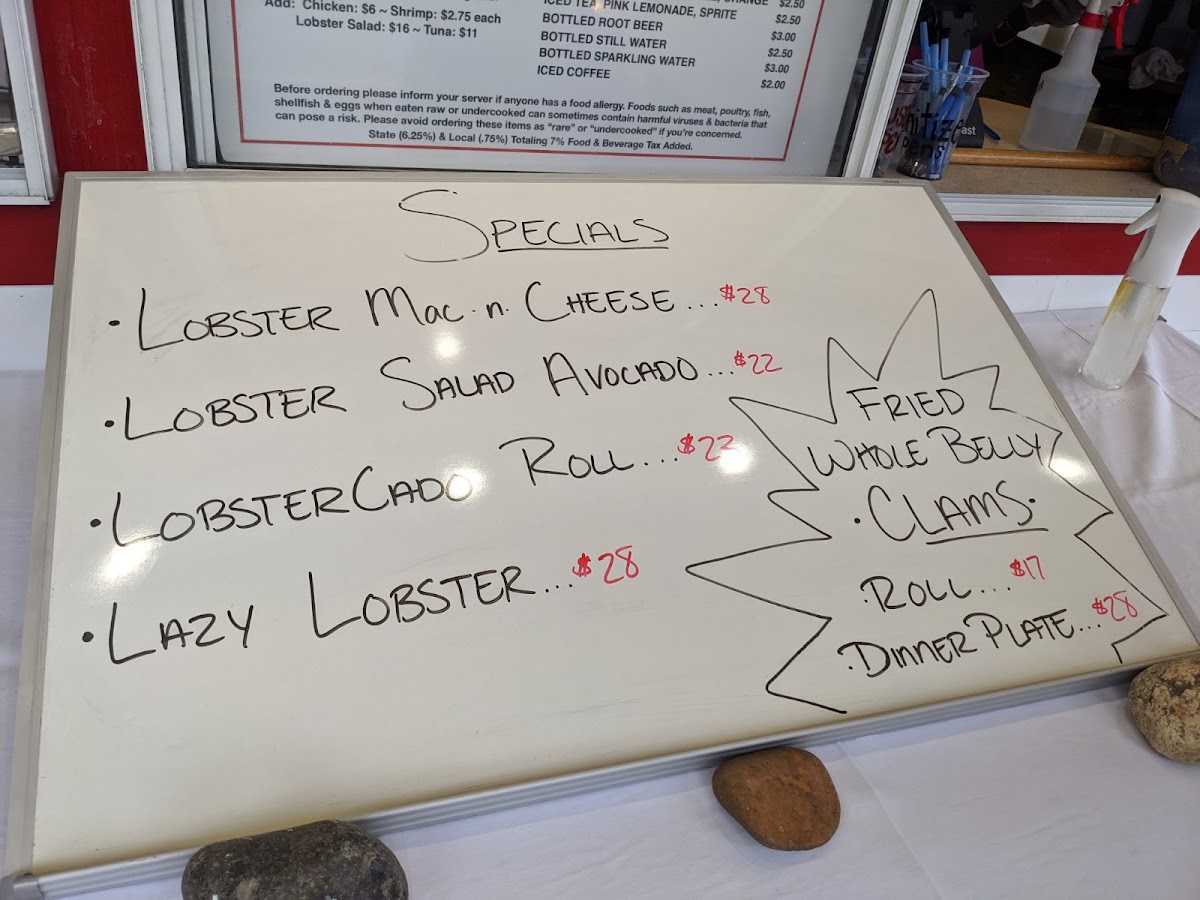 Add: Chicken: $6 ~ Shrimp: $2.75 each
Lobster Salad: $16 ~ Tuna: $11
$2.50
ICED TEA, PINK LEMONADE, SPRITE $2.50
BOTTLED ROOT BEER $3.00
BOTTLED STILL WATER $2.50
BOTTLED SPARKLING WATER $3.00
ICED COFFEE $2.00
Before ordering please inform your server if anyone has a food allergy. Foods such as meat, poultry, fish,
shellfish & eggs when eaten raw or undercooked can sometimes contain harmful viruses & bacteria that
can pose a risk. Please avoid ordering these items as "rare" or "undercooked" if you're concerned.
State (6.25%) & Local (.75%) Totaling 7% Food & Beverage Tax Added.
SPECIALS
• LOBSTER Mac n. CHEESE...$28
• LOBSTER SALAD AVOCADO...$22
• LOBSTERCADO ROLL...$23
• LAZY LOBSTER...$28
FRIED
WHOLE BELLY
• CLAMS •
• ROLL...$17
• DINNER PLATE...$28